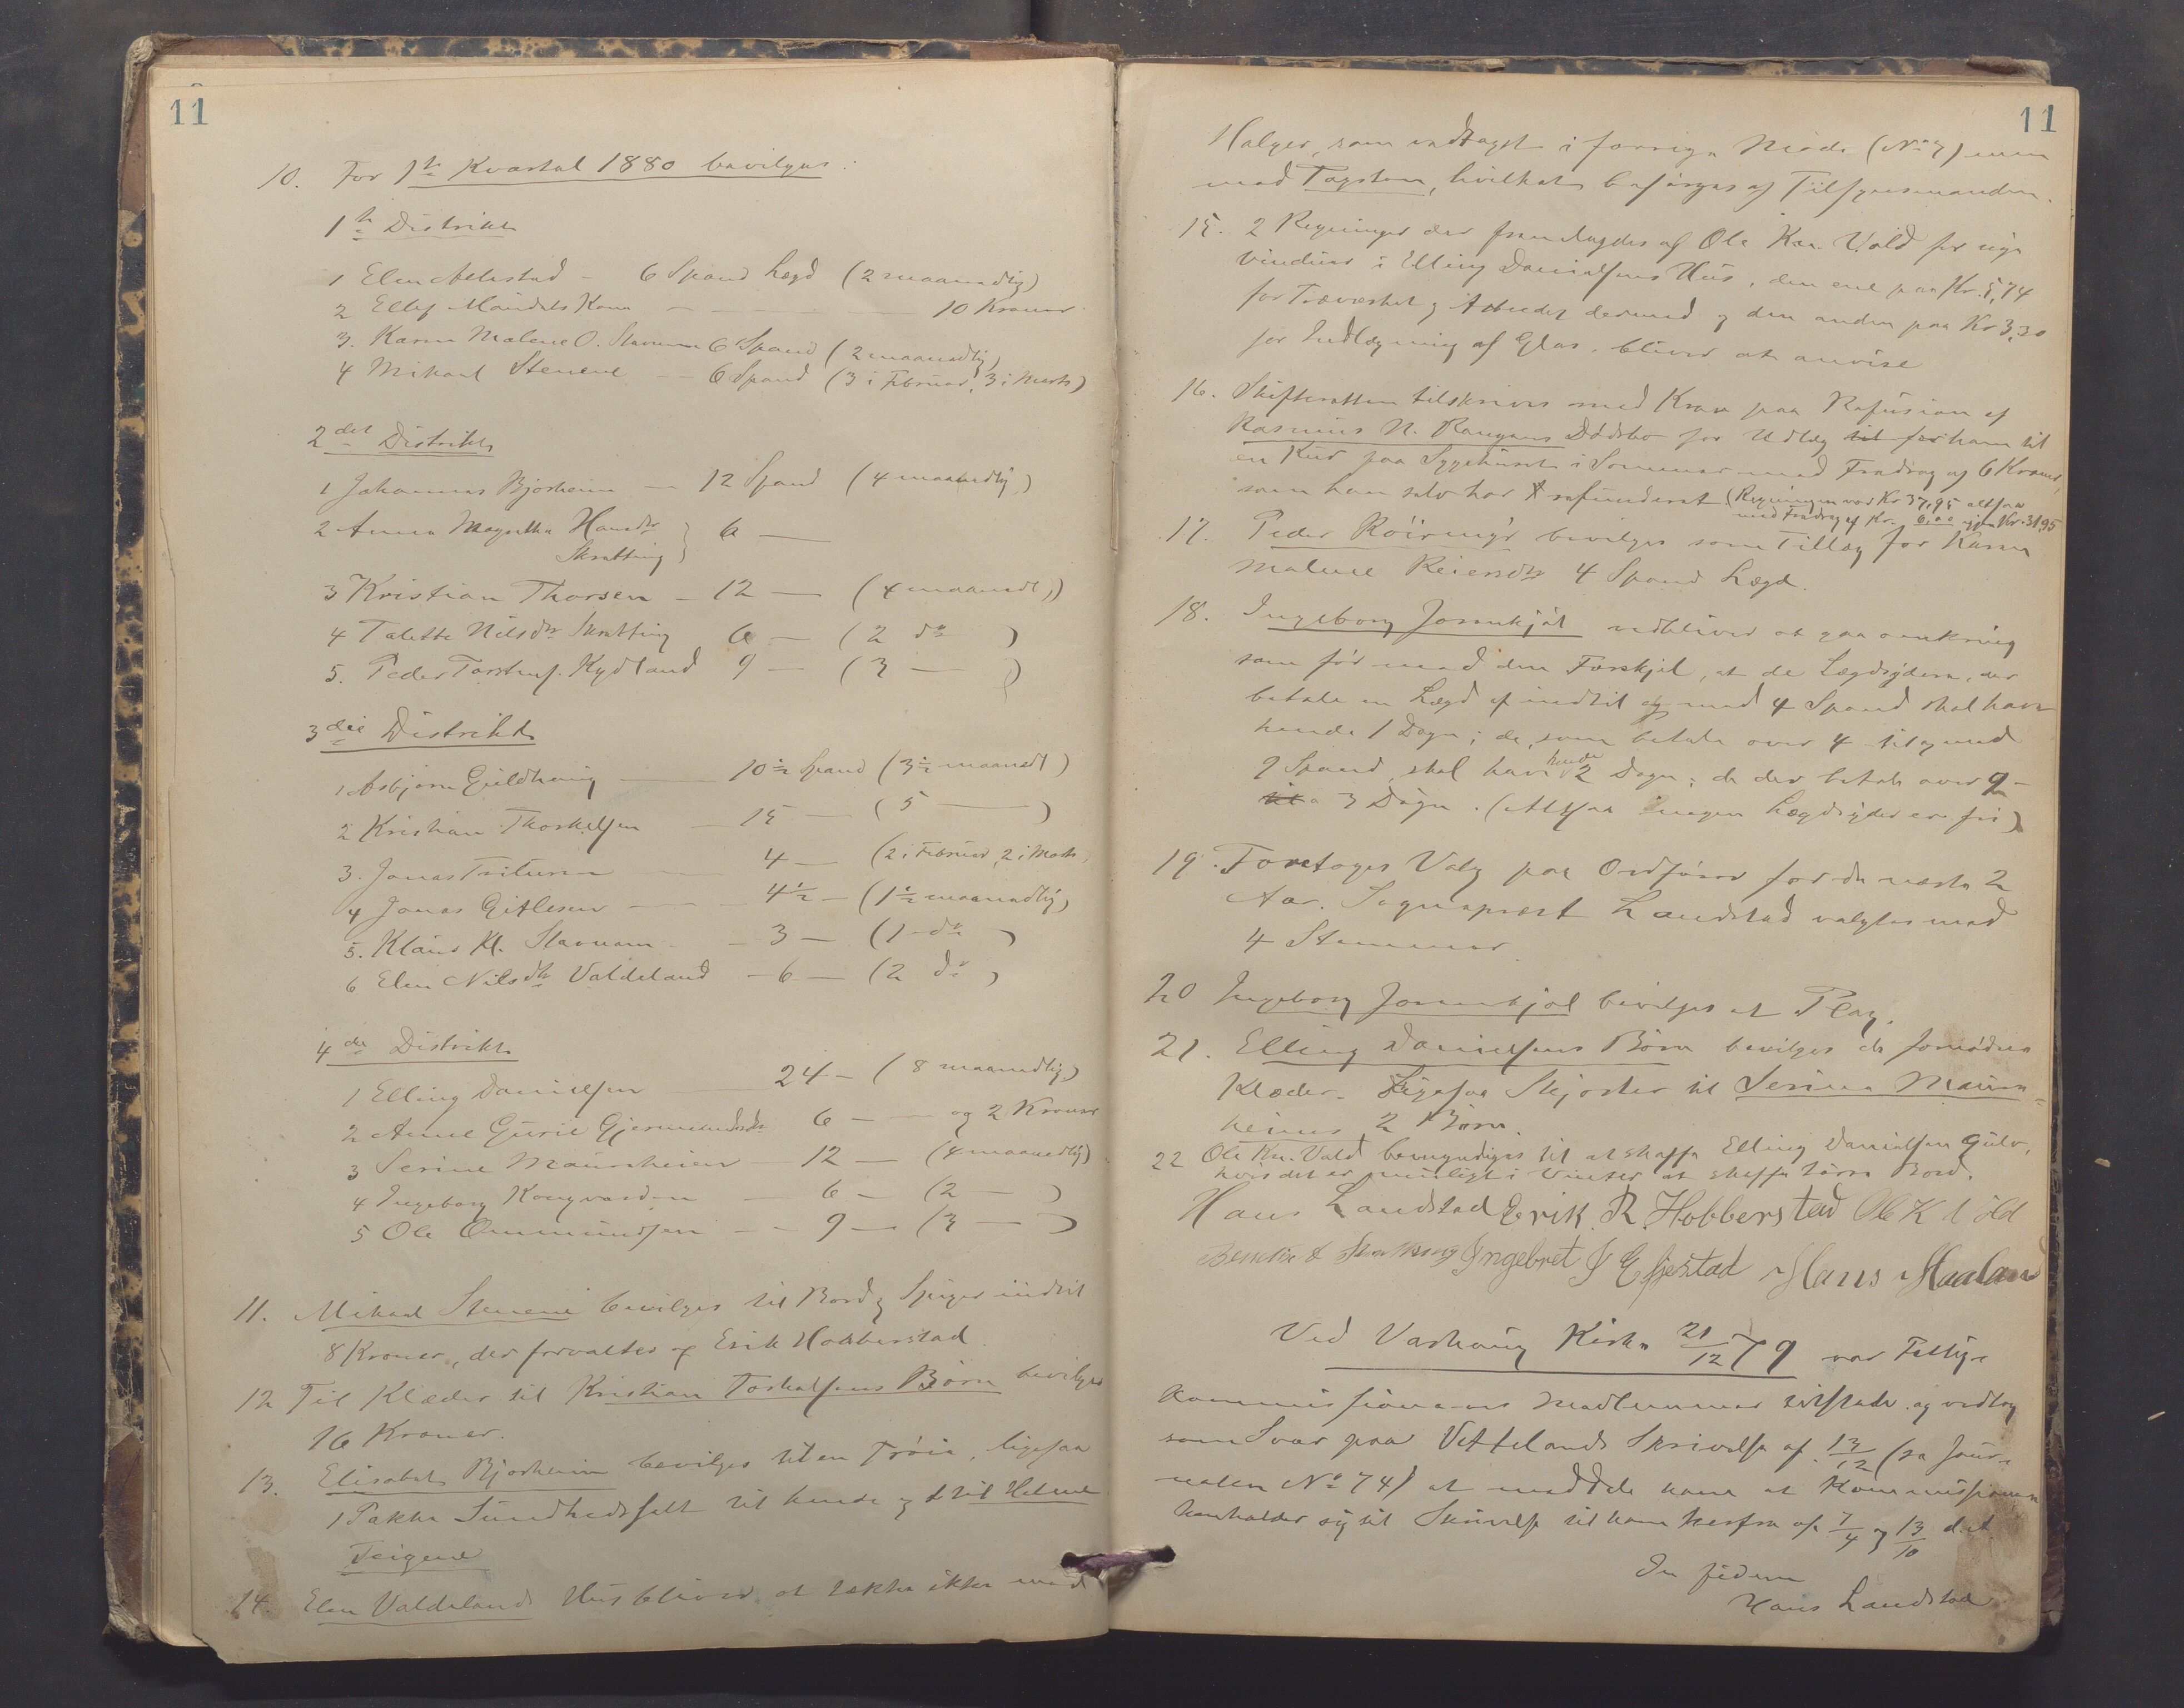 11
10. For 1te Kvartal 1880 bevilges:
1te Distrikt
1 Elen Aelestad - 6 Spand Lægd (2 maanedlig)
2 Ellef Maudals Kone - - - 10 Kroner
3. Karen Malene O. Stavnem 6 Spand (2 maanedlig)
4 Mikael Stenene - - 6 Spand (3 i Februar, 3 i Marts)
2det Distrikt
1 Johannes Bjorheim — 12 Spand (4 maanedlig)
2 Anna Magretha Hansdtr } 6 —
Skrætting
3 Kristian Thorsen - 12 — (4 maanedl.)
4 Talette Nilsdtr Skrætting 6 — (2 do )
5. Peder Torstens. Kydland 9 — (3 — )
3die Distrikt
1 Asbjørn Guldhaug — 10½ Spand (3½ maanedl)
2 Kristian Thorkelsen — 15 — (5 — )
3. Jonas — 4 — (2 i Februar, 2 i Marts)
4 Jonas Gitlesen — 4½ — (1½ maanedlig)
5. Klaus Kl. Stavnem - 3 — (1 do )
6 Elen Nilsdtr Valdeland - 6 — (2 do )
4de Distrikt
1 Elling Danielsen 24 - (8 maanedlig)
2 Anne Gurie Gjermundsdtr 6 — og 2 Kroner
3 Serine Maurnheien 12 — (4 maanedlig)
4 Ingeborg Kongvarden - 6 - (2 — )
5 Ole Ommundsen - 9 — (3 — )
11. Mikael Stenene bevilges til Bord og Spiger indtil
8 Kroner, der forvaltes af Erik Hobberstad
12 Til Klæder til Kristian Torkelsens Børn bevilges
16 Kroner.
13. Elisabet Bjorheim bevilges til en Trøie, ligesaa
1 Pakke Sundhedssalt til hende og 1 til Helene
Teigene
14. Elen Valdelands Hus bliver at tække ikke med
11
Halger, som vedtaget i forrige Møde (No 7) men
med Tagsten, hvilket besørges af Tilsynsmanden.
15. 2 Regninger der fremlagdes af Ole Kn. Vold for nye
Vinduer i Elling Danielsens Hus, den ene paa Kr. 5,74
for Træværket og Arbeidet dermed og den anden paa Kr 3,30
for Indlægning af Glas, bliver at anvise
16. Skifteretten tilskrives med Krav paa Refusion af
Rasmus N. Dødsbo for Udlæg til for ham til
en Kur paa Sygehuset i Sommer med Fradrag af 6 Kroner,
som han selv har refunderet (Regningen var Kr 37,95 altsaa
med Fradrag af Kr. 6,00 igjen Kr. 31,95
17. Peder bevilges som Tillæg for Karen
Malene Reiersdtr 4 Spand Lægd.
18. Ingeborg Jonnekjøl vedbliver at gaa omkring
som før med den Forskjel, at de Lægdsydere, der
betale en Lægd af indtil og med 4 Spand skal have
hende 1 Døgn; de, som betale over 4 til og med
9 Spand, skal have hende 2 Døgn; de der betale over 9 -
til 3 Døgn. (Altsaa ingen Lægdsyder er fri)
19. Foretoges Valg paa Ordfører for de næste 2
Aar. Sognepræst Landstad valgtes med
4 Stemmer
20 Ingeborg Jonnekjøl bevilges et Plag.
21. Elling Danielsens Børn bevilges de fornødne
Klæder. Ligesaa Skjorter til Serine Maurn=
heiens 2 Børn.
22 Ole Kn. Vold bemyndiges til at skaffe Elling Danielsen Gulv,
hvis det er muligt i Vinter at skaffe tørre Bord.
Hans Landstad Erik R. Hobberstad Ole K Vold
Bendix Skrætting Ingebret J Efjestad Hans Haaland
Ved Varhaug Kirke 21/12 79 var Fattig-
kommissionens Medlemmer tilstede og vedtog
som Svar paa Vettelands Skrivelse af 13/12 (se Jour-
nalen No 74) at meddele ham at Kommissionen
henholder sig til Skrivelse til ham herfra af 7/4 og 13/10 d.A
In fidem
Hans Landstad